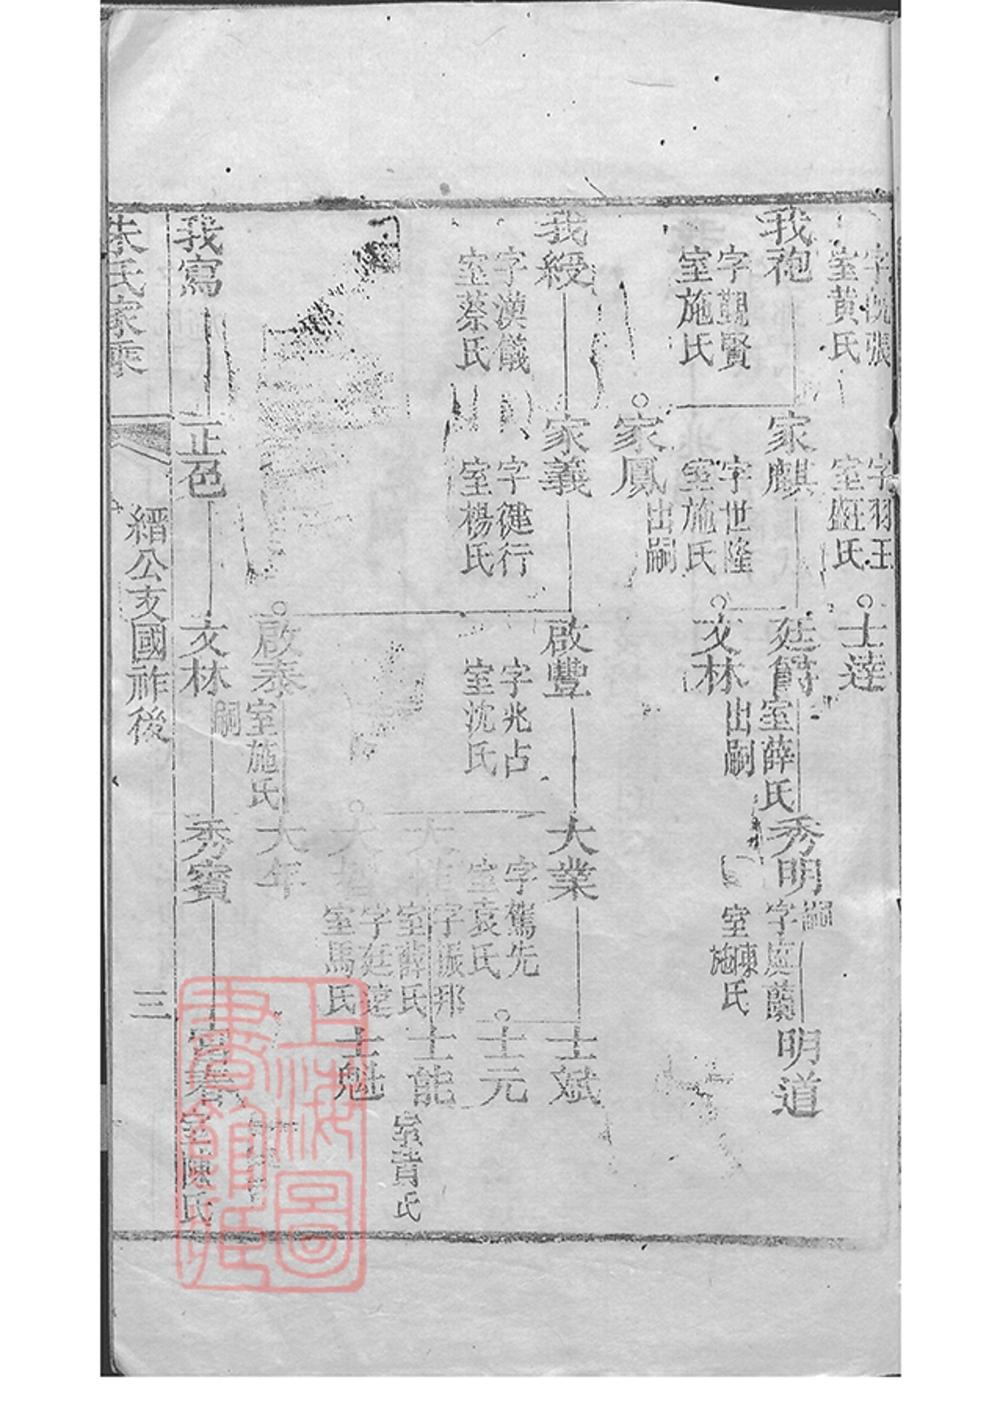 室黃氏
室莊氏
士達
我袍
字觀賢
室施氏
家麒
字世隆
室施氏
家鳳
出嗣
廷爵
室薛氏
文林
出嗣
秀明
嗣
字庭蘭
室陳施氏
明道
我綬
字漢儀
室蔡氏
家義
字健行
室楊氏
啟豐
字兆占
室沈氏
啟泰
室施氏
嗣
大業
字篤先
室袁氏
字振邦
室薛氏
字廷達
室馬氏
大年
士斌
士元
士能
室肖氏
士魁
我寫
正色
文林
秀賓
富春
室陳氏
朱氏家乘
縉公支國祚後
三
上海圖書館藏